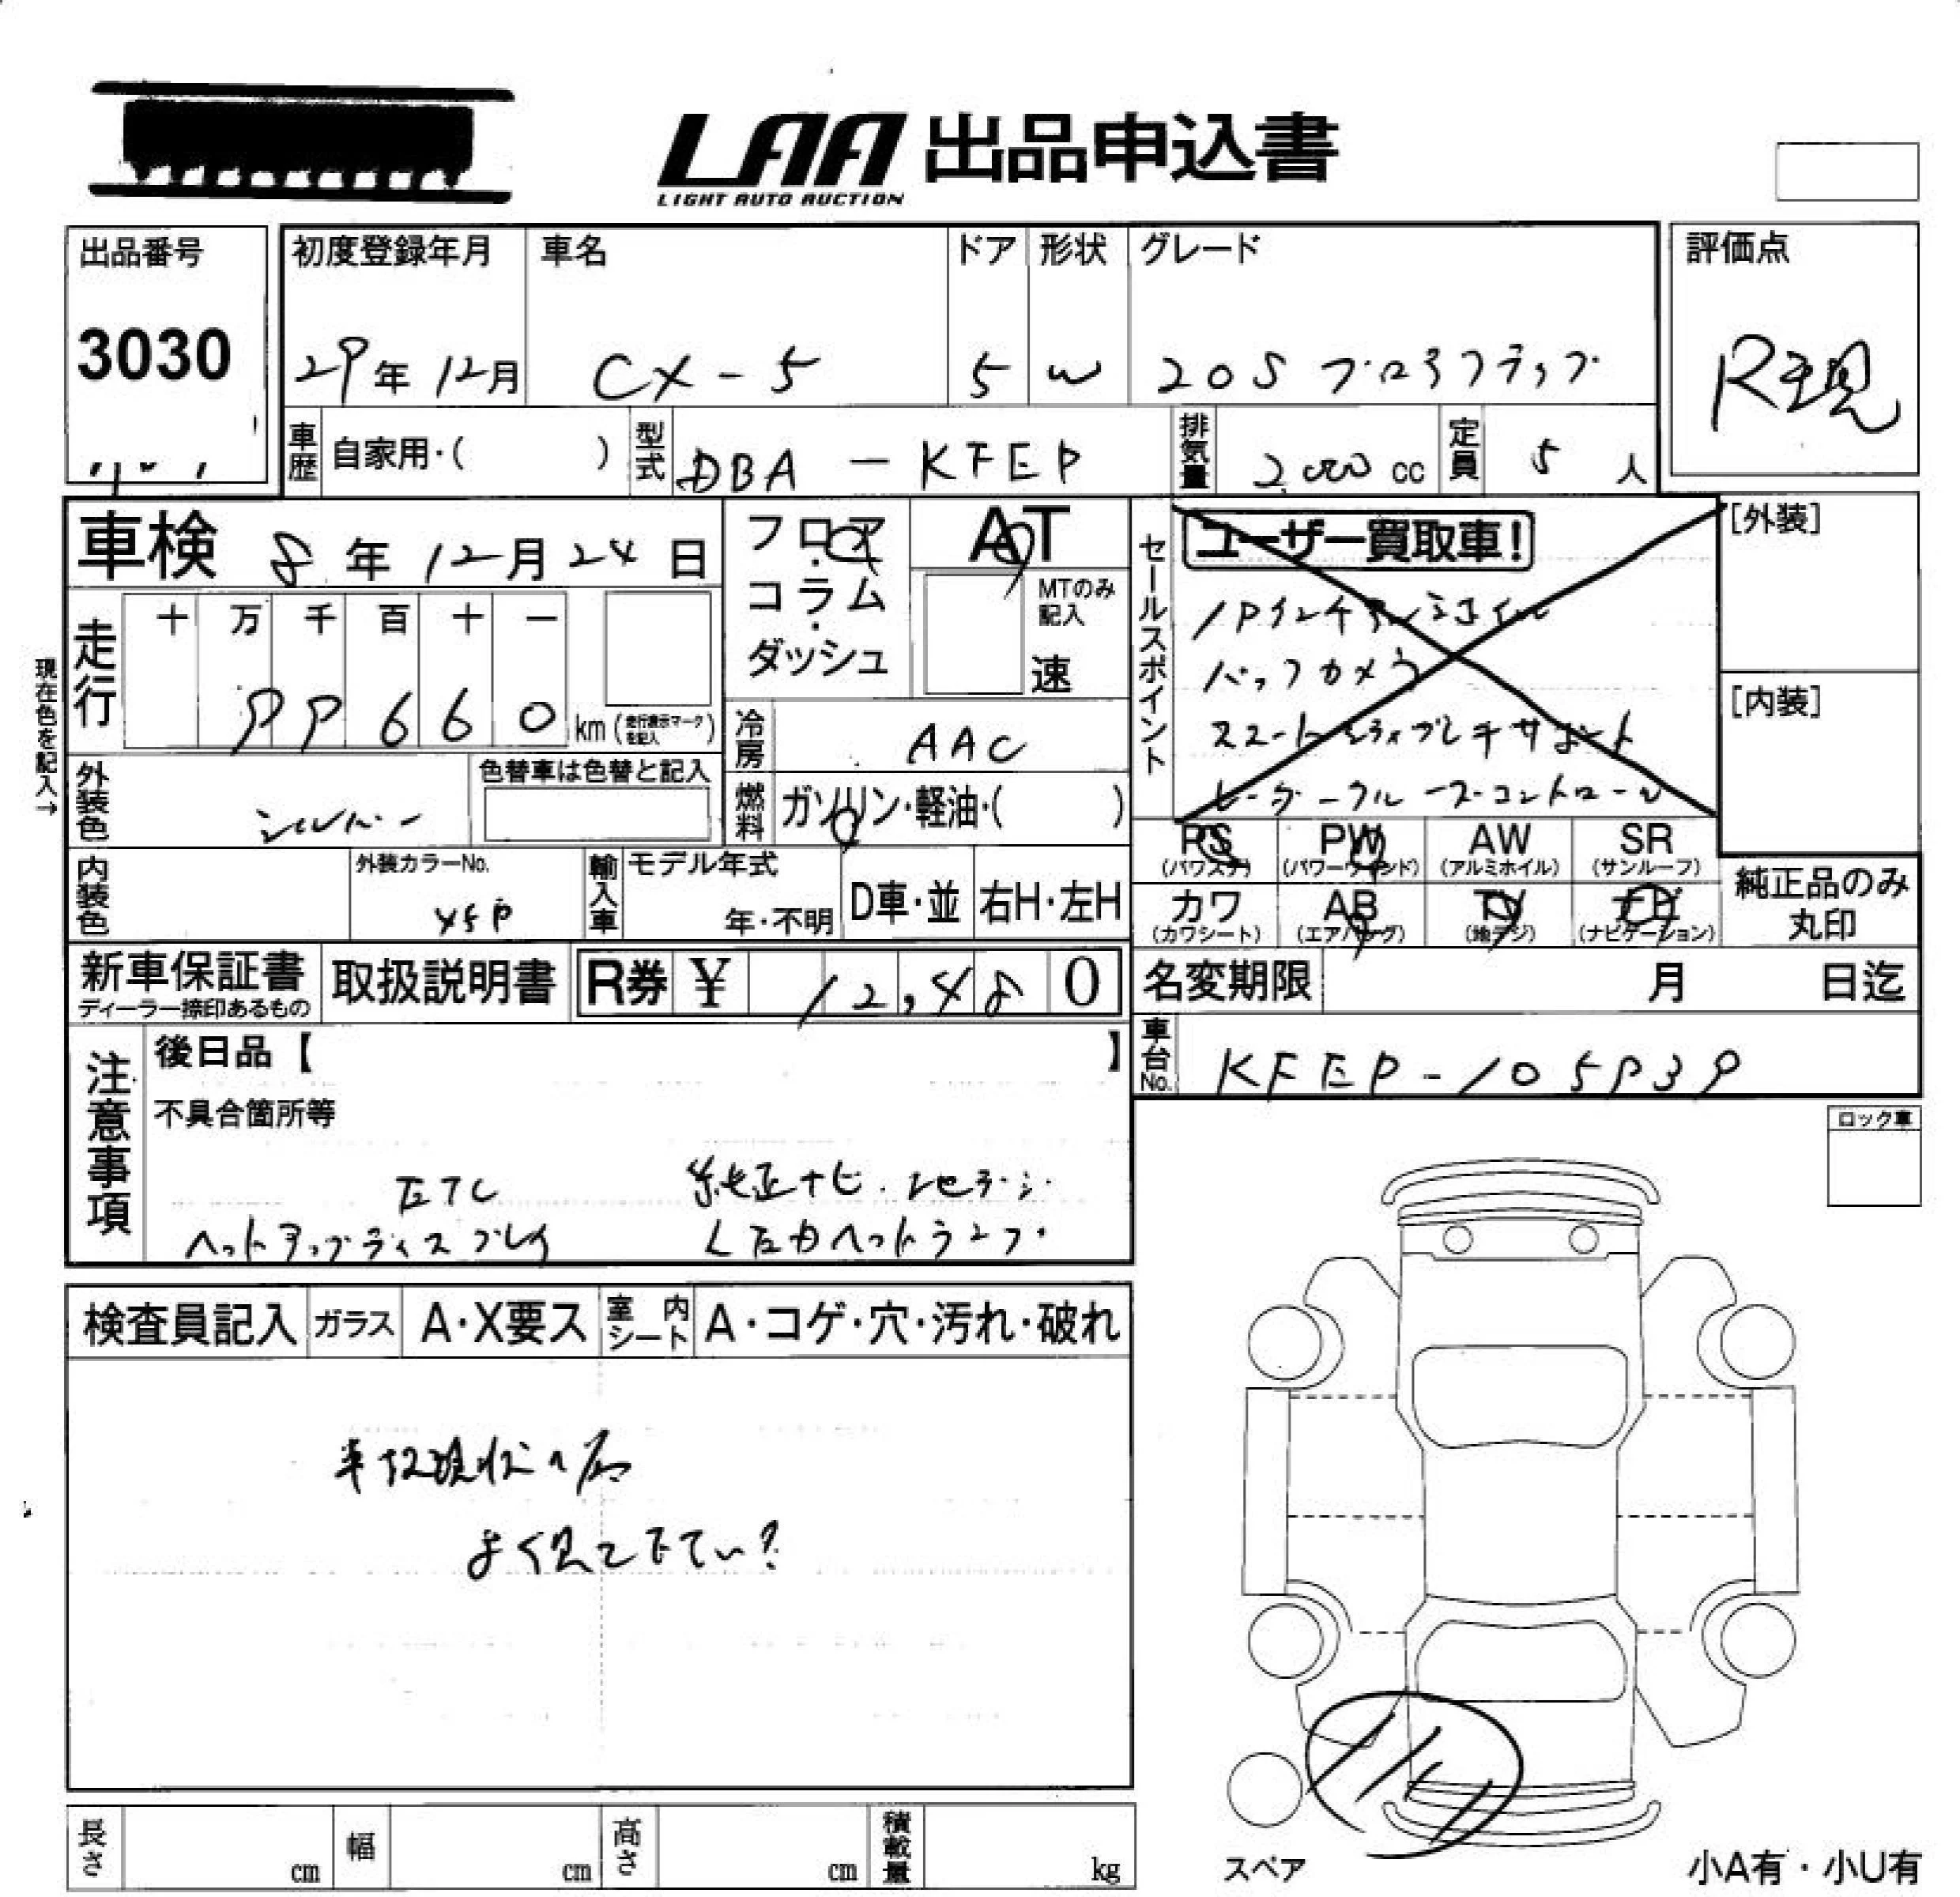 LAA 出品申込書
LIGHT AUTO AUCTION
出品番号
3030
初度登録年月 車名 ドア 形状 グレード
29年 12月 CX-5 5 W 20S プロアクティブ
評価点
R現
車歴 自家用・( ) 型式 DBA-KFEP 排気量 2,000 cc 定員 5 人
車検 8年 12月 24日
フロア・コラム・ダッシュ
AT
MTのみ記入
速
セールスポイント
ユーザー買取車!
19インチアルミホイル
バックカメラ
スマートシティブレーキサポート
レーダークルーズコントロール
[外装]
[内装]
現在色を記入→
走行 十 万 千 百 十 一
99660 km(走行表示マークを記入)
冷房 AAC
外装色 シルバー 色替車は色替と記入
燃料 ガソリン・軽油・( )
PS (パワステ) PW (パワーウィンド) AW (アルミホイル) SR (サンルーフ)
カワ (カワシート) AB (エアバッグ) TV (地デジ) ナビ (ナビゲーション)
純正品のみ丸印
内装色 外装カラーNo. 輸入車 モデル年式 年・不明 D車・並 右H・左H
新車保証書 ディーラー捺印あるもの 取扱説明書 R券 ¥ 12,480
名変期限 月 日迄
車台No. KFEP-105939
注意事項
後日品【 】
不具合箇所等
ETC 純正ナビ・フルセグ
ヘッドアップディスプレイ LEDヘッドランプ
ロック車
検査員記入 ガラス A・X要ス 室内シート A・コゲ・穴・汚れ・破れ
車輌現状の為
よく見て下さい?
長さ cm 幅 cm 高さ cm 積載量 kg
スペア
小A有・小U有